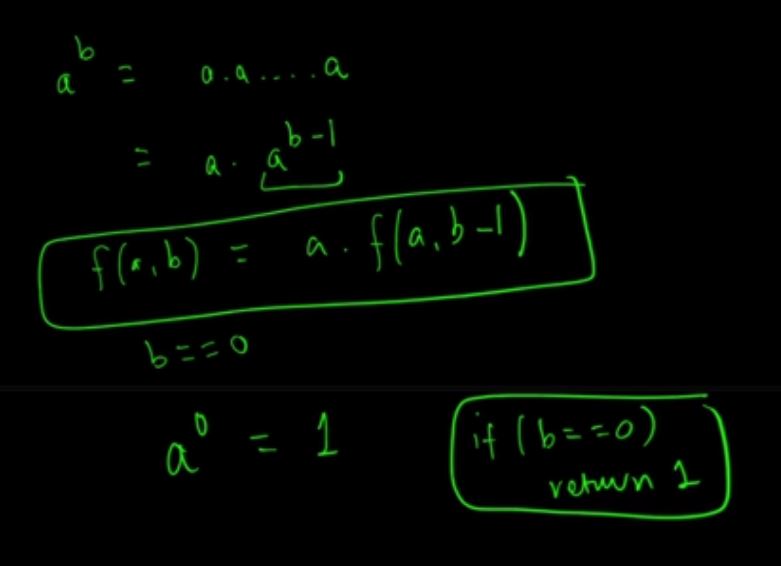 a^b = a.a....a
= a. a^b-1
f(a,b) = a. f(a,b-1)
b==0
a^0 = 1
if (b==0)
return 1